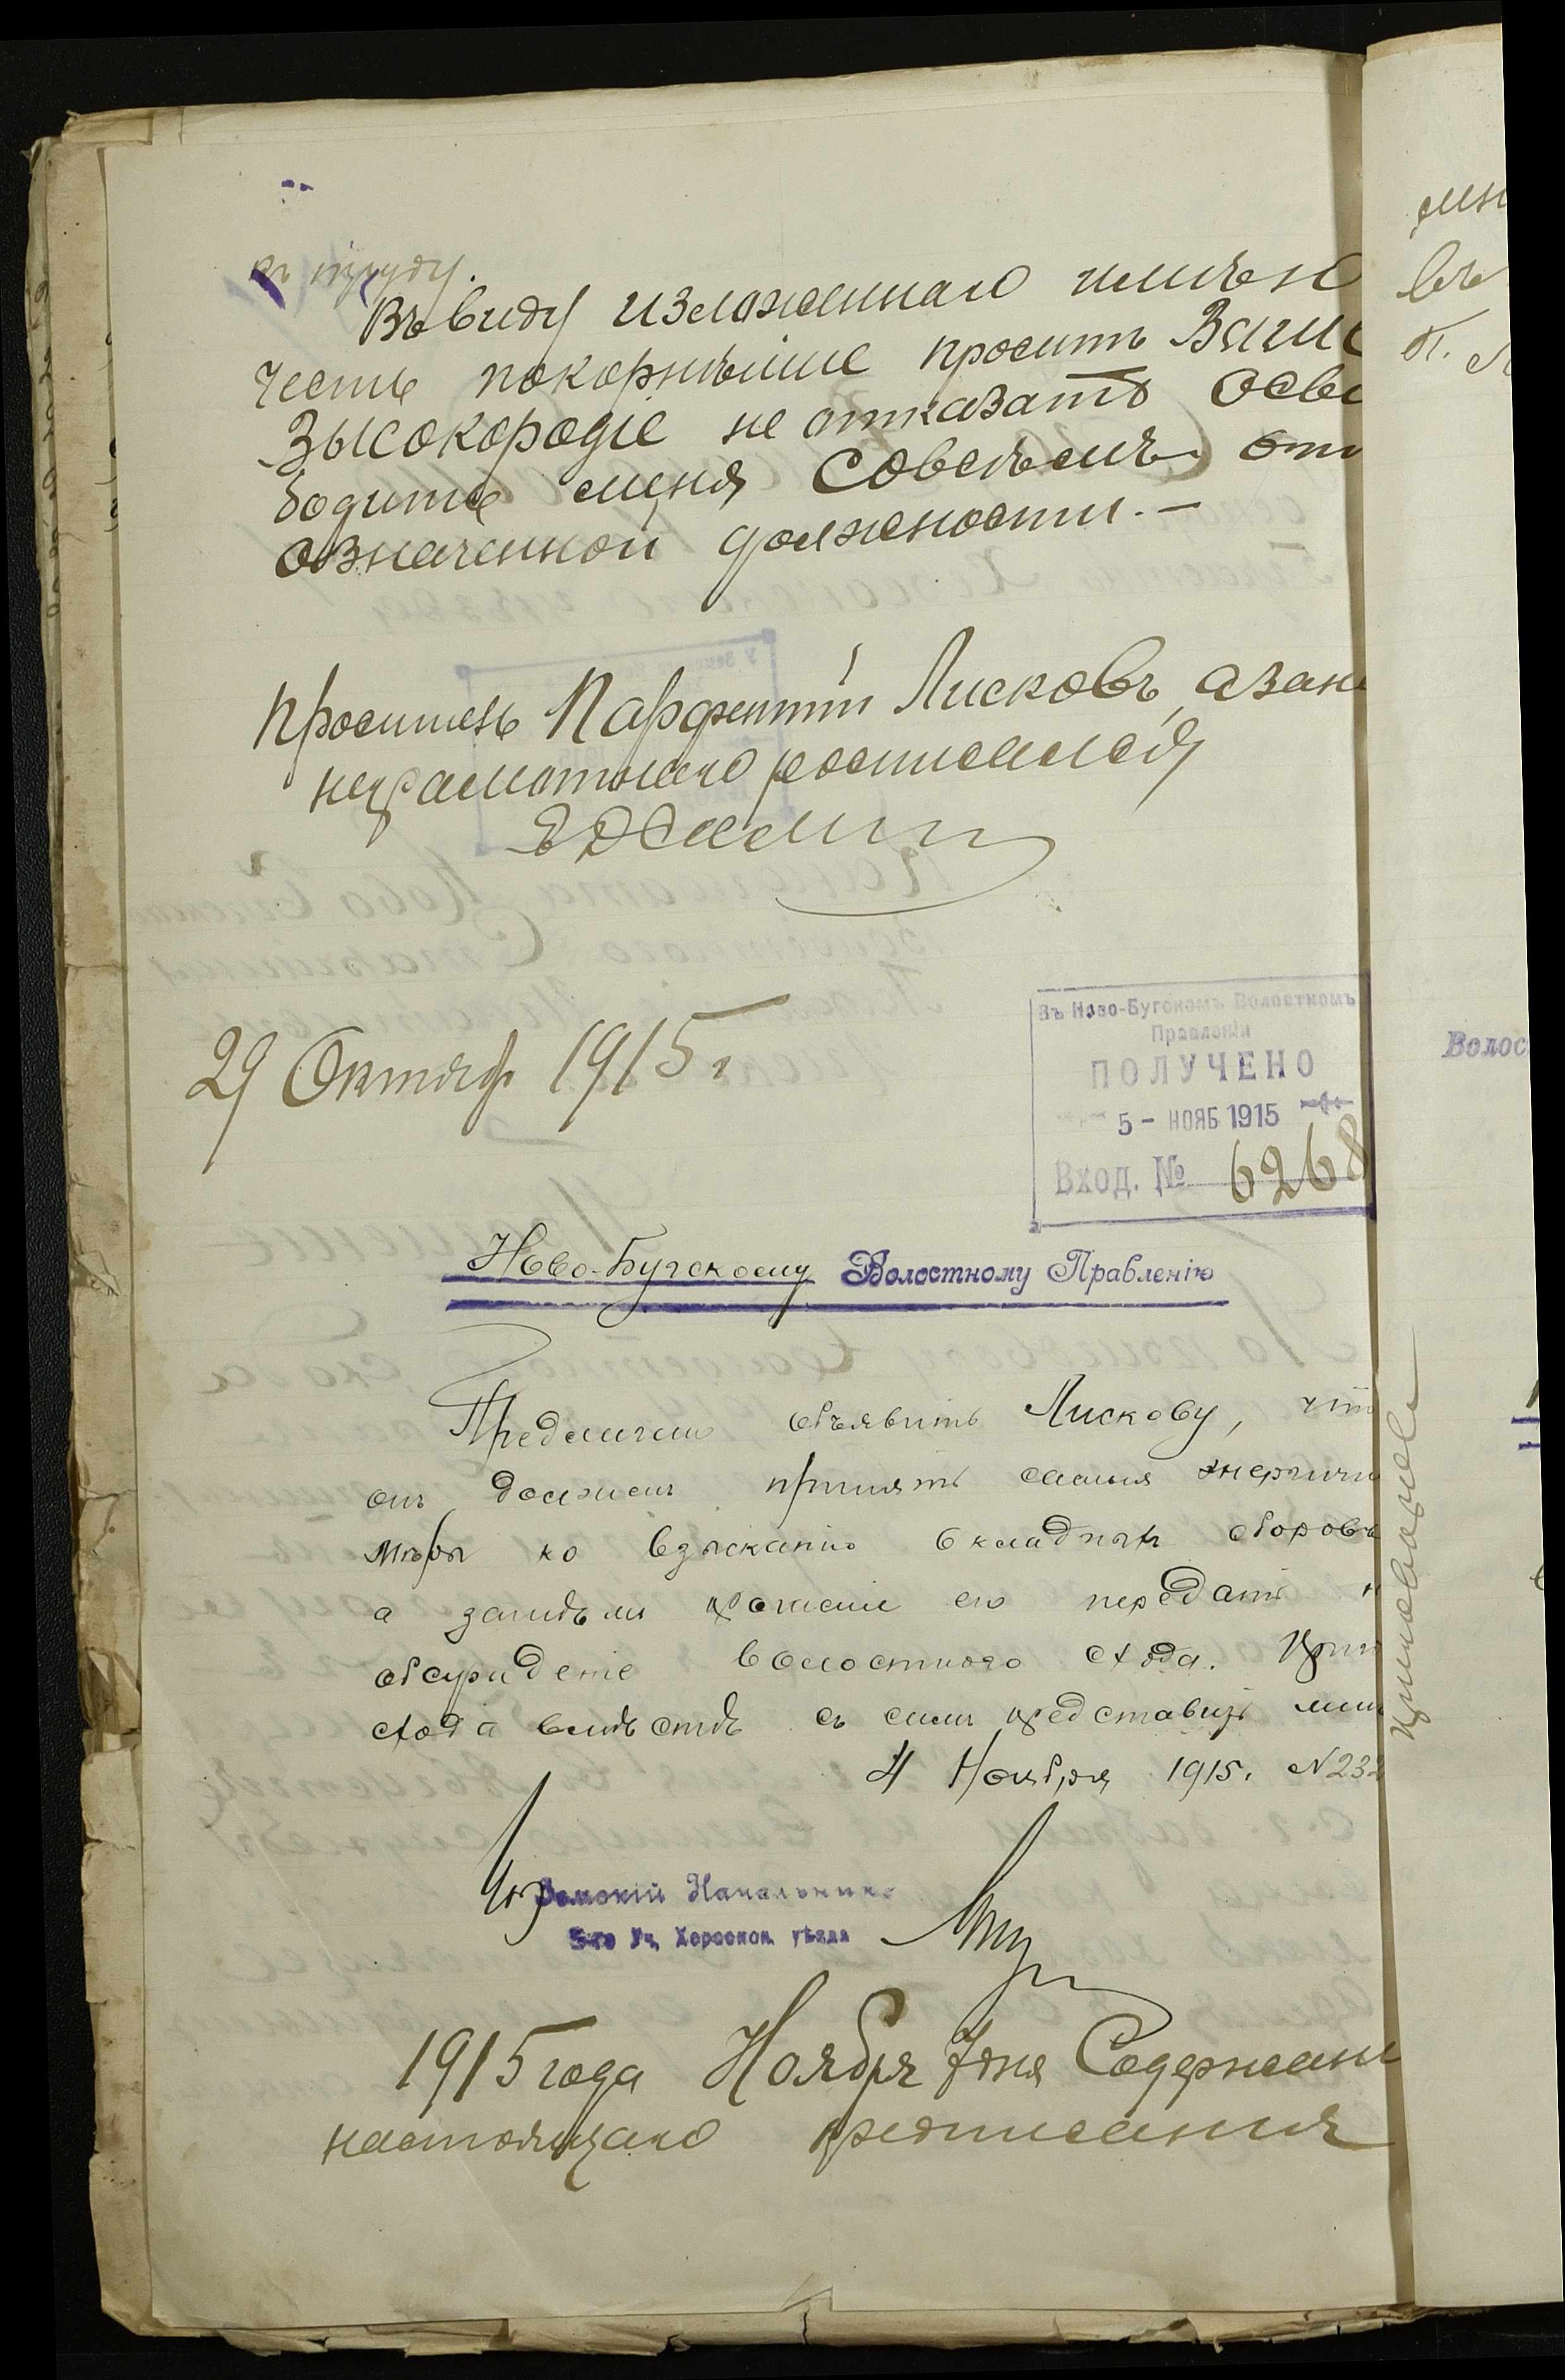 къ труду.
Въ виду изложеннаго имѣю
честь покорнѣйше просить Ваше
Высокородіе не отказать осво
бодить меня совсѣмъ отъ
означенной должности.-
Проситель Парфентій Лисковъ, а за не
неграмотнаго росписался
29 Октябр 1915 г
Въ Ново-Бугскомъ Волостномъ
Правленіи
ПОЛУЧЕНО
5 - НОЯБ 1915
Вход. № 6268
Ново-Бугскому Волостному Правленію
Предлагаю объявить Лискову, что
онъ долженъ принять самыя энергичн
мѣры ко взысканію окладныхъ сборовъ
а затѣмъ прошеніе его передать н
обсужденіе волостного схода. Приг
схода вмѣстѣ съ симъ представить мнѣ
4 Ноября 1915. N 232
Земскій Начальникъ
5-го Уч. Херсонск. уѣзда
1915 года Ноября 7 дня Содержани
настоящаго предписанія
мн
въ
Волос